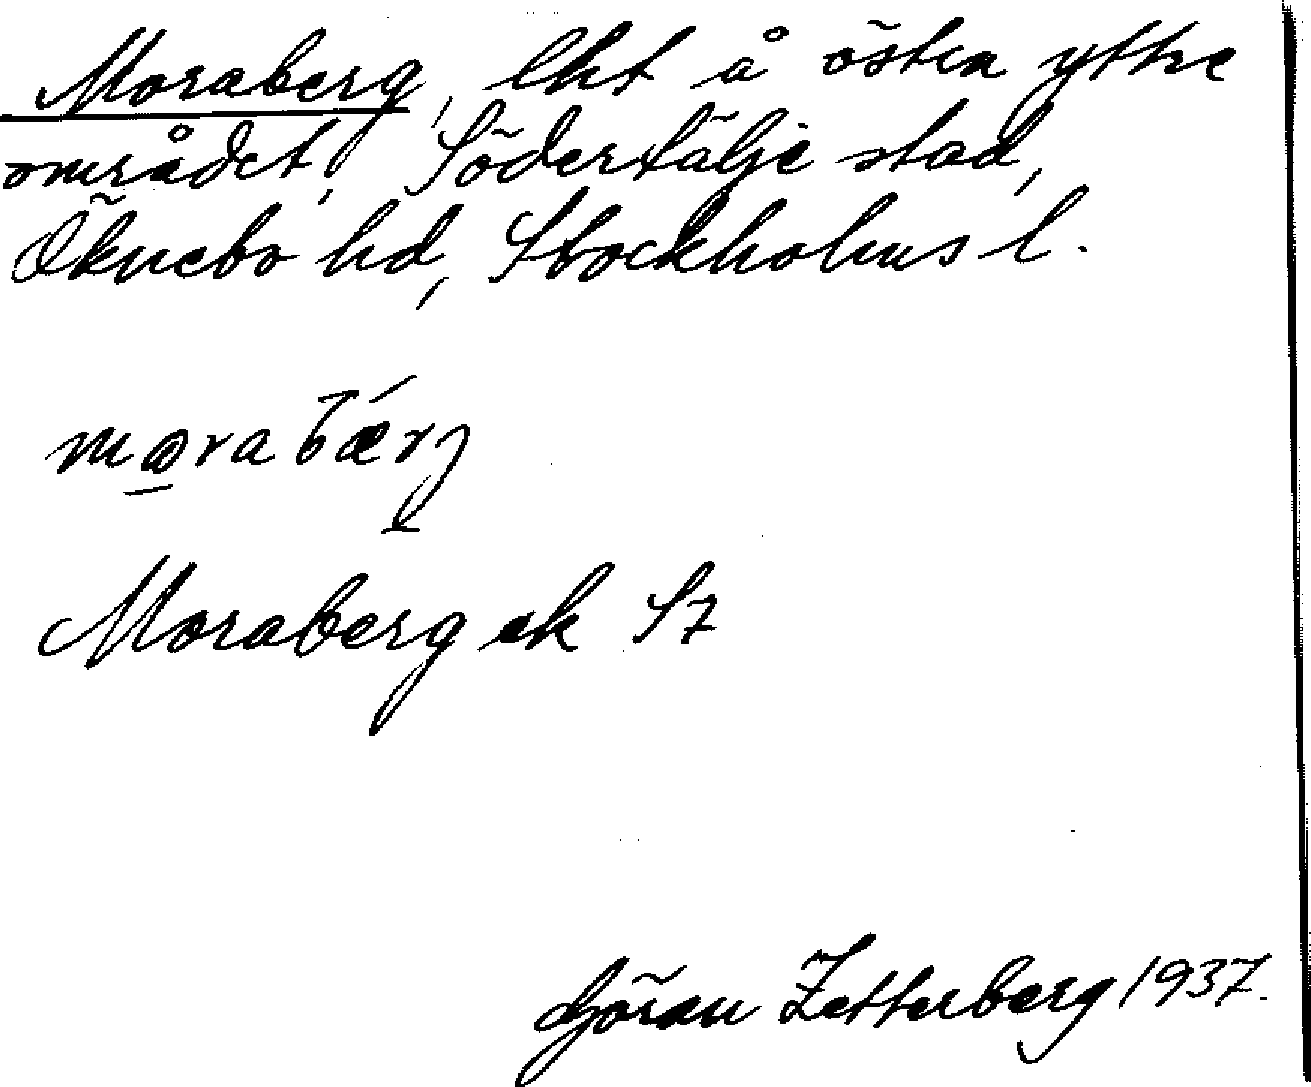 Moraberg, lht å östra yttre
området, Södertälje stad,
Öknebo hd, Stockholms l.
Moraberg ek S7
Göran Zetterberg 1937.